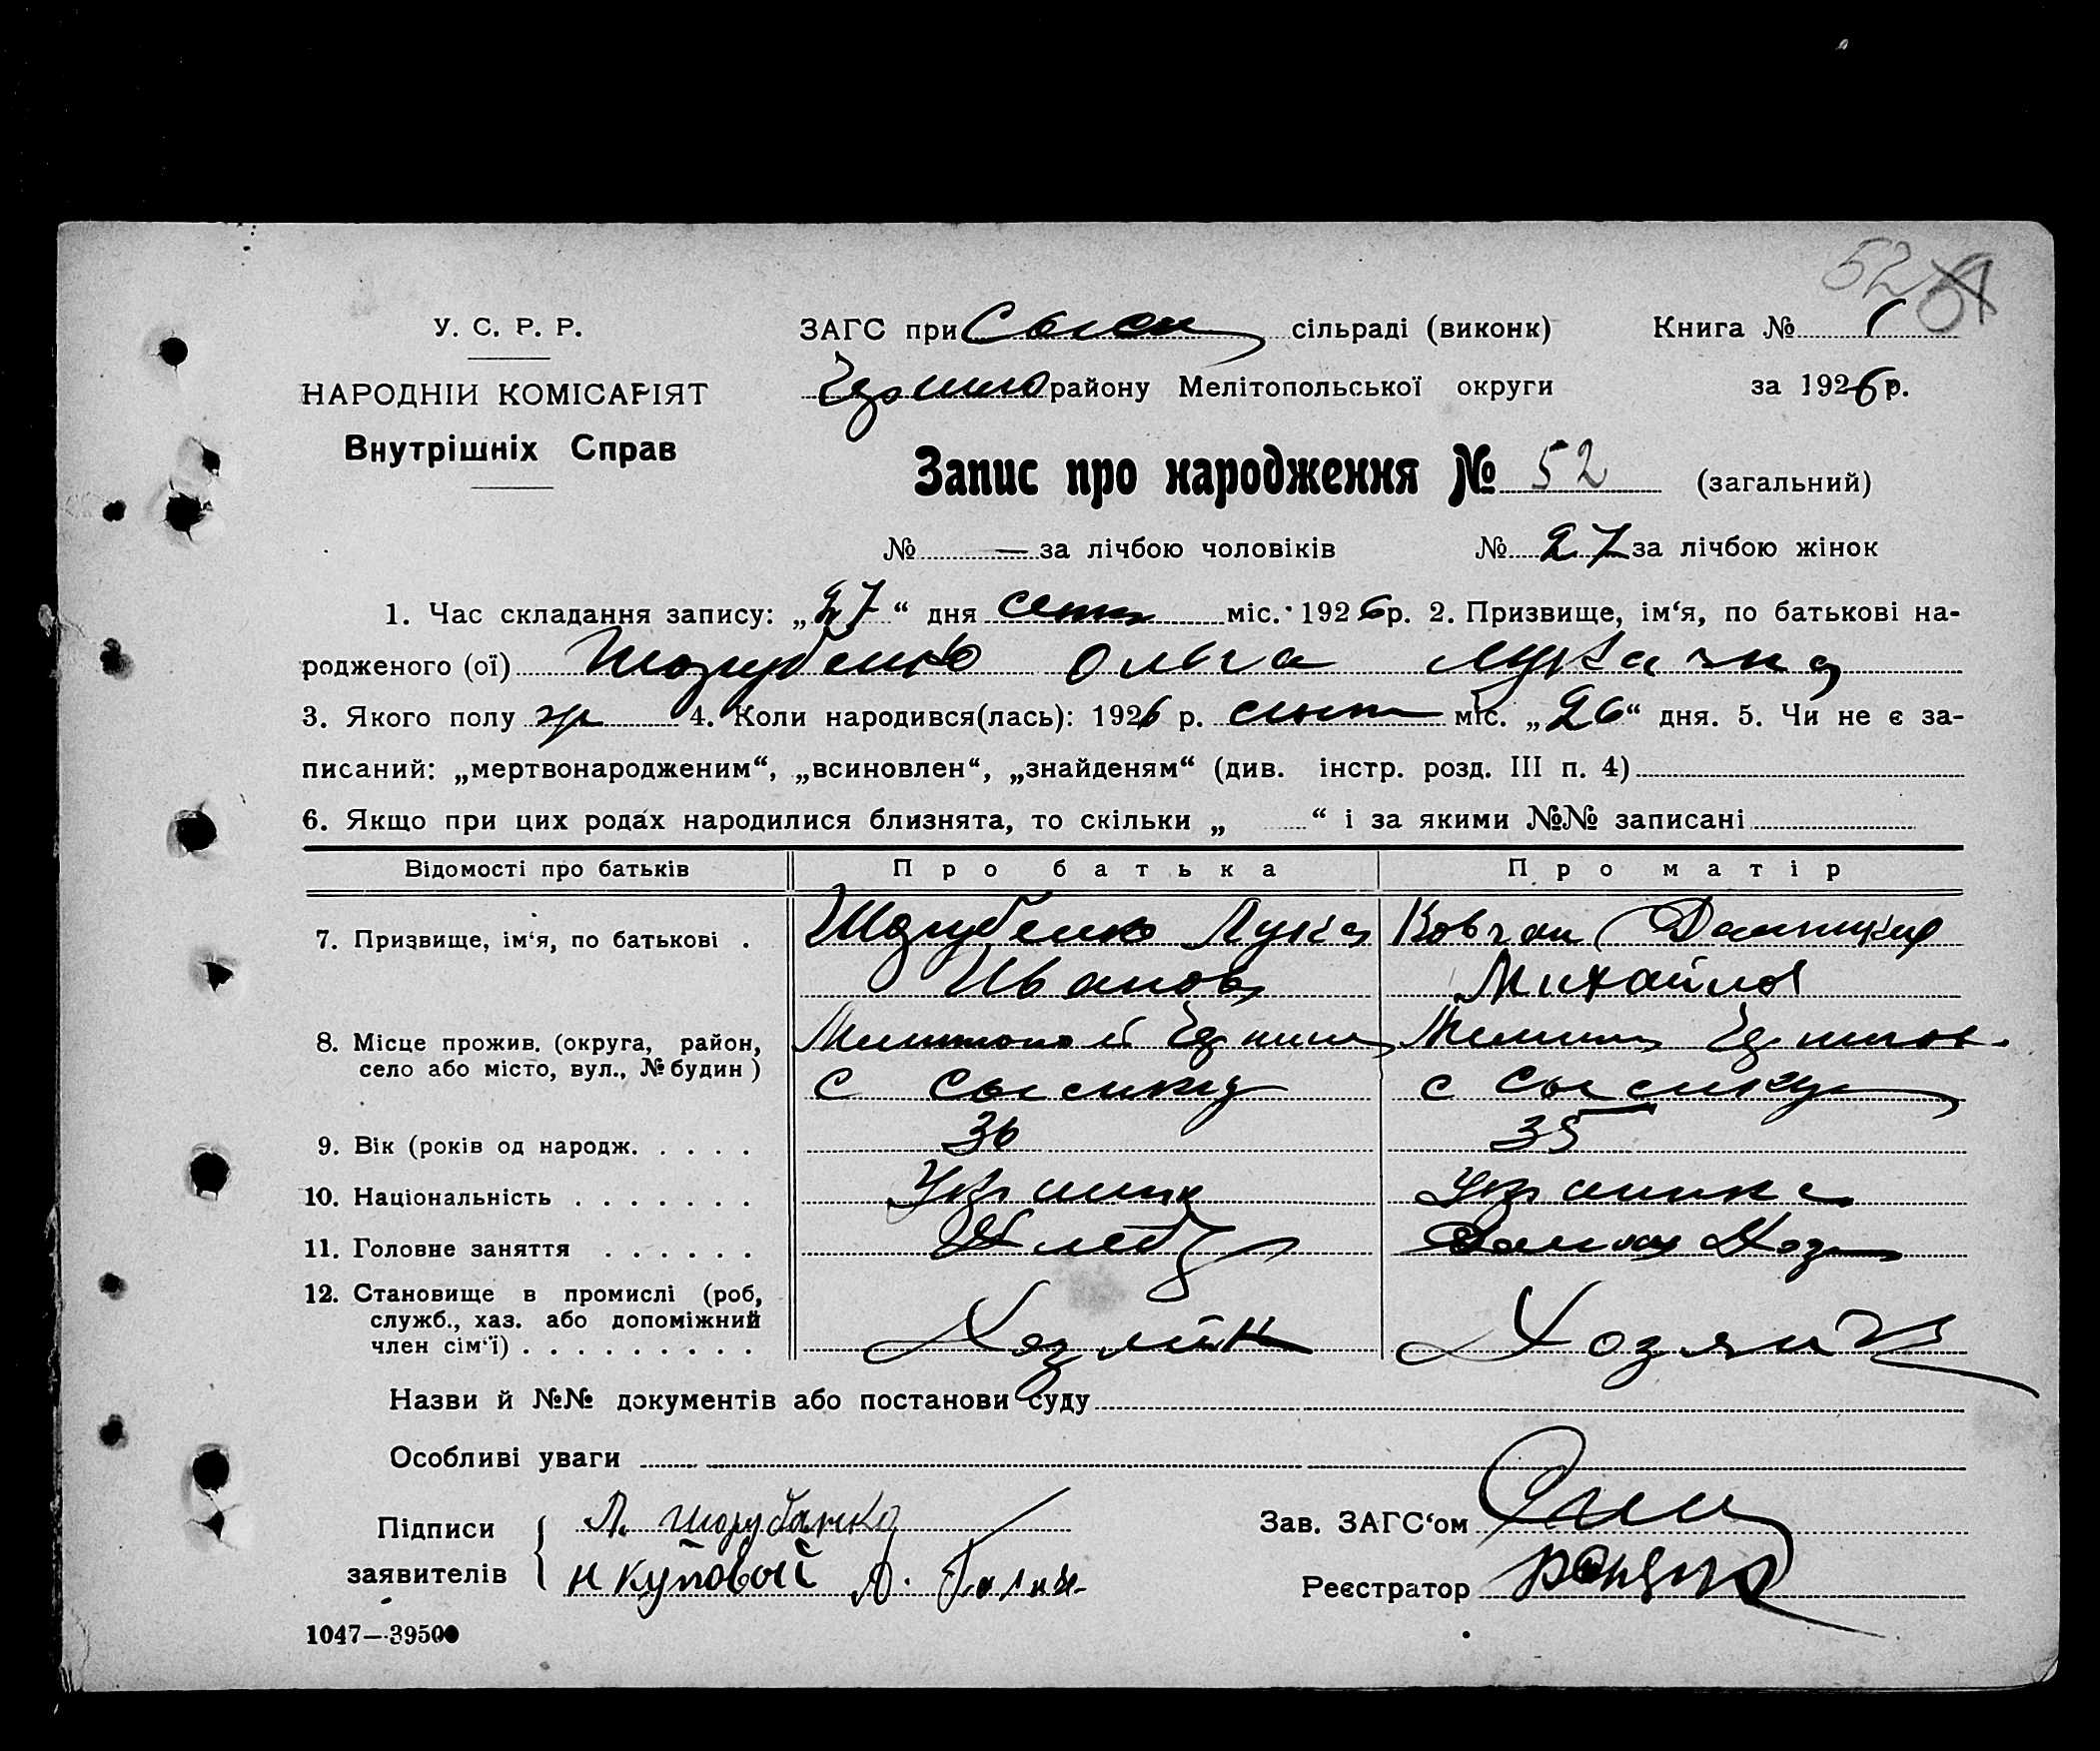 52
У. С. Р. Р.
НАРОДНІЙ КОМІСАРІЯТ
Внутрішніх Справ
ЗАГС при сільраді (виконк) Книга № 1
району Мелітопольської округи за 1926 р.
Запис про народження № 52 (загальний)
№ — за лічбою чоловіків № 27 за лічбою жінок
1. Час складання запису: „27“ дня сент міс. 1926 р. 2. Призвище, ім‘я, по батькові на-
родженого (ої) Шорубенко Ольга Лук
3. Якого полу 4. Коли народився(лась): 1926 р. сент міс. „26“ дня. 5. Чи не є за-
писаний: „мертвонародженим“, „всиновлен“, „знайденям“ (див. інстр. розд. III п. 4)
6. Якщо при цих родах народилися близнята, то скільки „ “ і за якими №№ записані
Відомості про батьків Про батька Про матір
7. Призвище, ім‘я, по батькові . Шорубенко Лука
Иванов Михайлов
8. Місце прожив. (округа, район,
село або місто, вул., № будин ) с с
9. Вік (років од народж. . . . . 36 35
10. Національність . . . . . . . Украинец Украинка
11. Головне заняття . . . . . . Хлеб Домаш Хоз
12. Становище в промислі (роб,
служб., хаз. або допоміжний
член сім‘ї) . . . . . . . . . Хозяин
Назви й №№ документів або постанови суду
Особливі уваги
Підписи Л. Шорубенко Зав. ЗАГС‘ом
заявителів Реєстратор
1047—39500